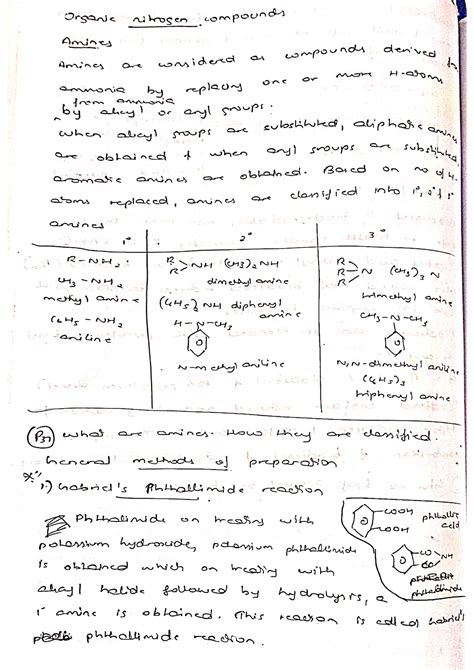 Organic nitrogen compounds
Amines
Amines are considered as compounds derived
ammonia by replacing one or more H-atoms
from ammonia
by alkyl or aryl groups.
When alkyl groups are substituted, aliphatic amines
are obtained & when aryl groups are substituted,
aromatic amines are obtained. Based on no of H.
atoms replaced, amines are classified into 1°, 2° &
amines
1° 2° 3°
R-NH2. R R >NH (CH3)2 NH R R R >N (CH3)3 N
CH3-NH2 dimethyl amine trimethyl amine
methyl amine (C6H5)2 NH diphenyl amine CH3-N-CH3
C6H5-NH2 H-N-CH3
aniline
N-methyl aniline N,N-dimethyl aniline
(C6H5)3
triphenyl amine
P37 What are amines. How they are classified.
General methods of preparation
1) Gabriel's Phthallimide reaction
COOH phthallic
COOH acid
Phthalimide on treating with
CO NH
CO
phthalimide
potassium hydroxide, potassium phthalimide
is obtained which on treating with
alkyl halide followed by hydrolysis, a
1° amine is obtained. This reaction is called Gabriel's
phthallimide reaction.